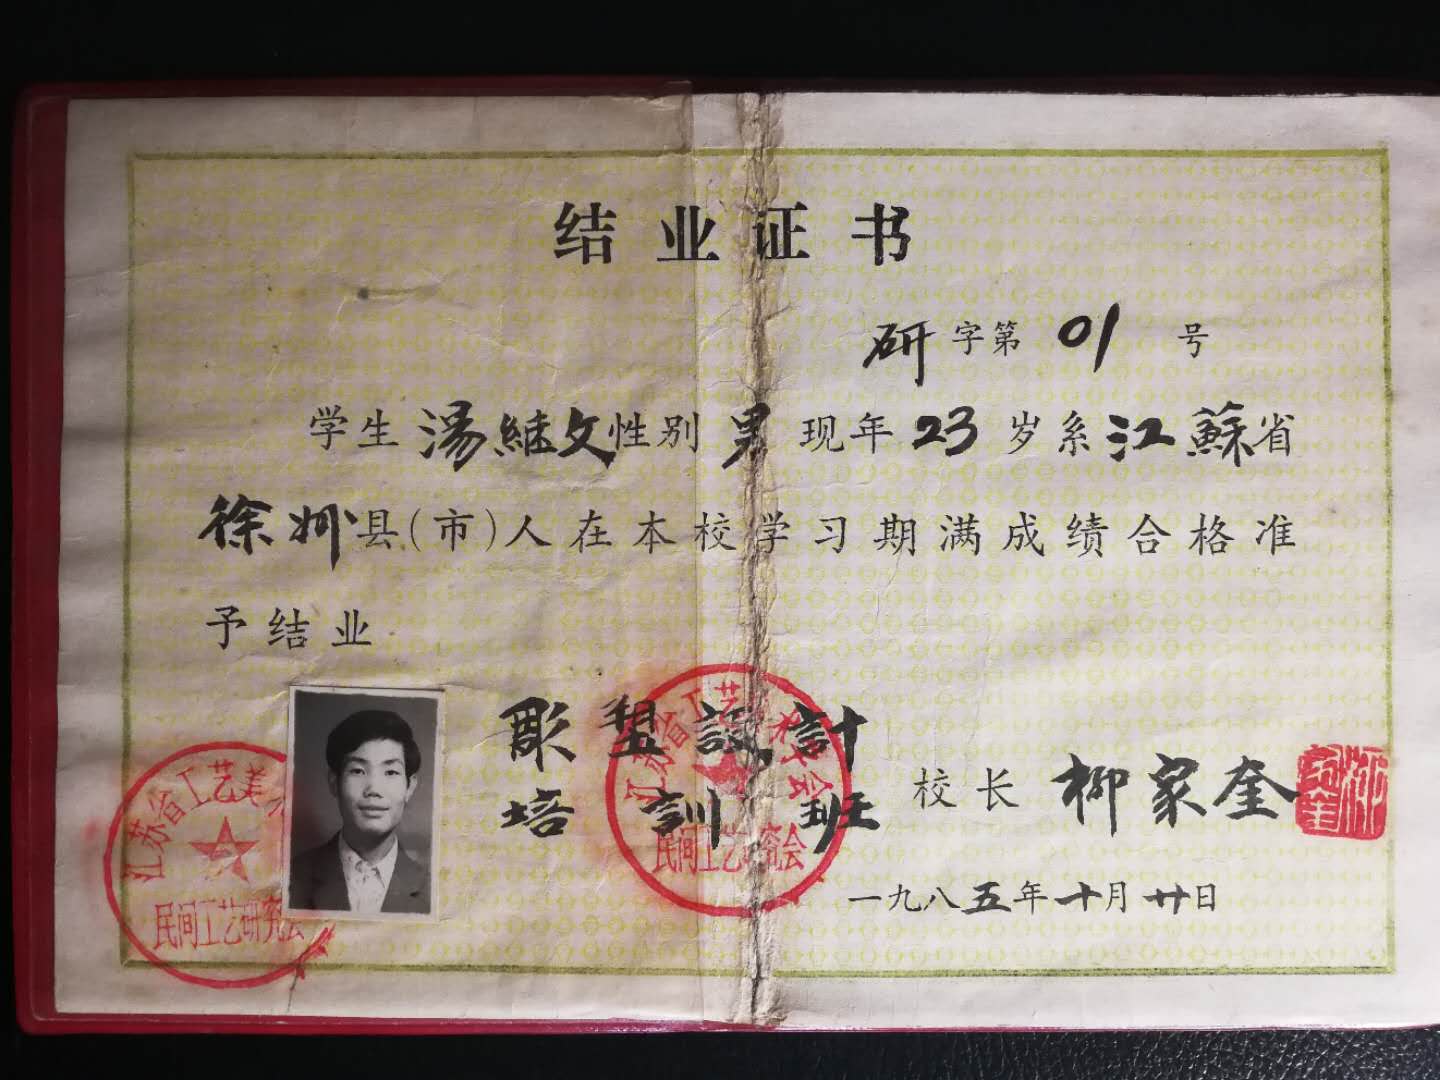 结业证书
研字第01号
学生湯継文性别男现年23岁系江蘇省
徐州县(市)人在本校学习期满成绩合格准
予结业
彫塑設計
培訓班
校长柳家奎
一九八五年十月廿日
江苏省工艺美
民间工艺研究会
江苏省工艺 学会
民间工艺研究会